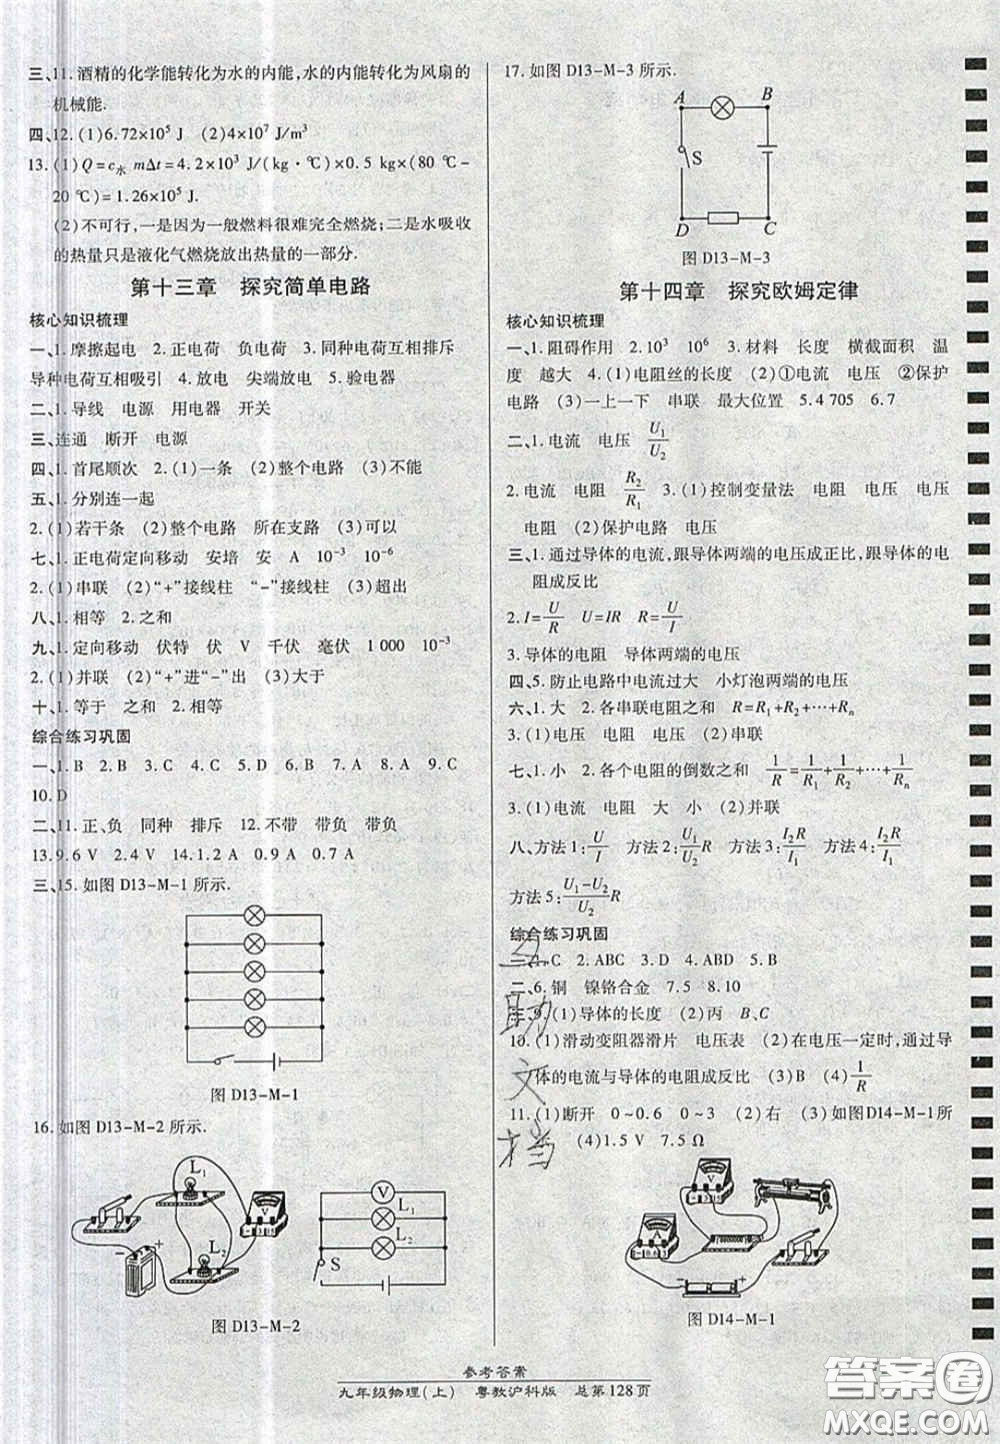 三、11.酒精的化学能转化为水的内能,水的内能转化为风扇的
机械能.
四、12.(1)6.72×10⁵ J (2)4×10⁷ J/m³
13.(1)Q=c水 mΔt=4.2×10³ J/(kg·℃)×0.5 kg×(80 ℃-
20 ℃)=1.26×10⁵ J.
(2)不可行,一是因为一般燃料很难完全燃烧;二是水吸收
的热量只是液化气燃烧放出热量的一部分.
第十三章 探究简单电路
核心知识梳理
一、1.摩擦起电 2.正电荷 负电荷 3.同种电荷互相排斥
异种电荷互相吸引 4.放电 尖端放电 5.验电器
二、1.导线 电源 用电器 开关
三、连通 断开 电源
四、1.首尾顺次 2.(1)一条 (2)整个电路 (3)不能
五、1.分别连一起
2.(1)若干条 (2)整个电路 所在支路 (3)可以
七、1.正电荷定向移动 安培 安 A 10⁻³ 10⁻⁶
2.(1)串联 (2)“+”接线柱 “-”接线柱 (3)超出
八、1.相等 2.之和
九、1.定向移动 伏特 伏 V 千伏 毫伏 1 000 10⁻³
2.(1)并联 (2)“+”进“-”出 (3)大于
十、1.等于 之和 2.相等
综合练习巩固
一、1.B 2.B 3.C 4.C 5.B 6.B 7.A 8.A 9.C
10.D
二、11.正、负 同种 排斥 12.不带 带负 带负
13.9.6 V 2.4 V 14.1.2 A 0.9 A 0.7 A
三、15.如图 D13-M-1 所示.
图 D13-M-1
16.如图 D13-M-2 所示.
L₁
A
L₂
V
L₁
L₂
S
图 D13-M-2
17.如图 D13-M-3 所示.
A B
S
D C
图 D13-M-3
第十四章 探究欧姆定律
核心知识梳理
一、1.阻碍作用 2.10³ 10⁶ 3.材料 长度 横截面积 温
度 越大 4.(1)电阻丝的长度 (2)①电流 电压 ②保护
电路 (3)一上一下 串联 最大位置 5.4 705 6.7
二、1.电流 电压 U₁/U₂
2.电流 电阻 R₂/R₁ 3.(1)控制变量法 电阻 电压 电压
电阻 (2)保护电路 电压
三、1.通过导体的电流,跟导体两端的电压成正比,跟导体的电
阻成反比
2.I=U/R U=IR R=U/I
3.导体的电阻 导体两端的电压
四、5.防止电路中电流过大 小灯泡两端的电压
六、1.大 2.各串联电阻之和 R=R₁+R₂+…+Rₙ
3.(1)电压 电压 电阻 (2)串联
七、1.小 2.各个电阻的倒数之和 1/R=1/R₁+1/R₂+…+1/Rₙ
3.(1)电流 电阻 大 小 (2)并联
八、方法 1:U/I 方法 2:U₁/U₂R 方法 3:I₂R/I₁ 方法 4:I₂R/I₁
方法 5:U₁-U₂/U₂R
综合练习巩固
一、1.C 2.ABC 3.D 4.ABD 5.B
二、6.铜 镍铬合金 7.5 8.10
三、9.(1)导体的长度 (2)丙 B、C
10.(1)滑动变阻器滑片 电压表 (2)在电压一定时,通过导
体的电流与导体的电阻成反比 (3)B (4)1/R
11.(1)断开 0~0.6 0~3 (2)右 (3)如图D14-M-1所
示 (4)1.5 V 7.5 Ω
图 D14-M-1
互
助
文
档
参考答案
九年级物理(上) 粤教沪科版 总第128页
答案圈
MXQE.COM